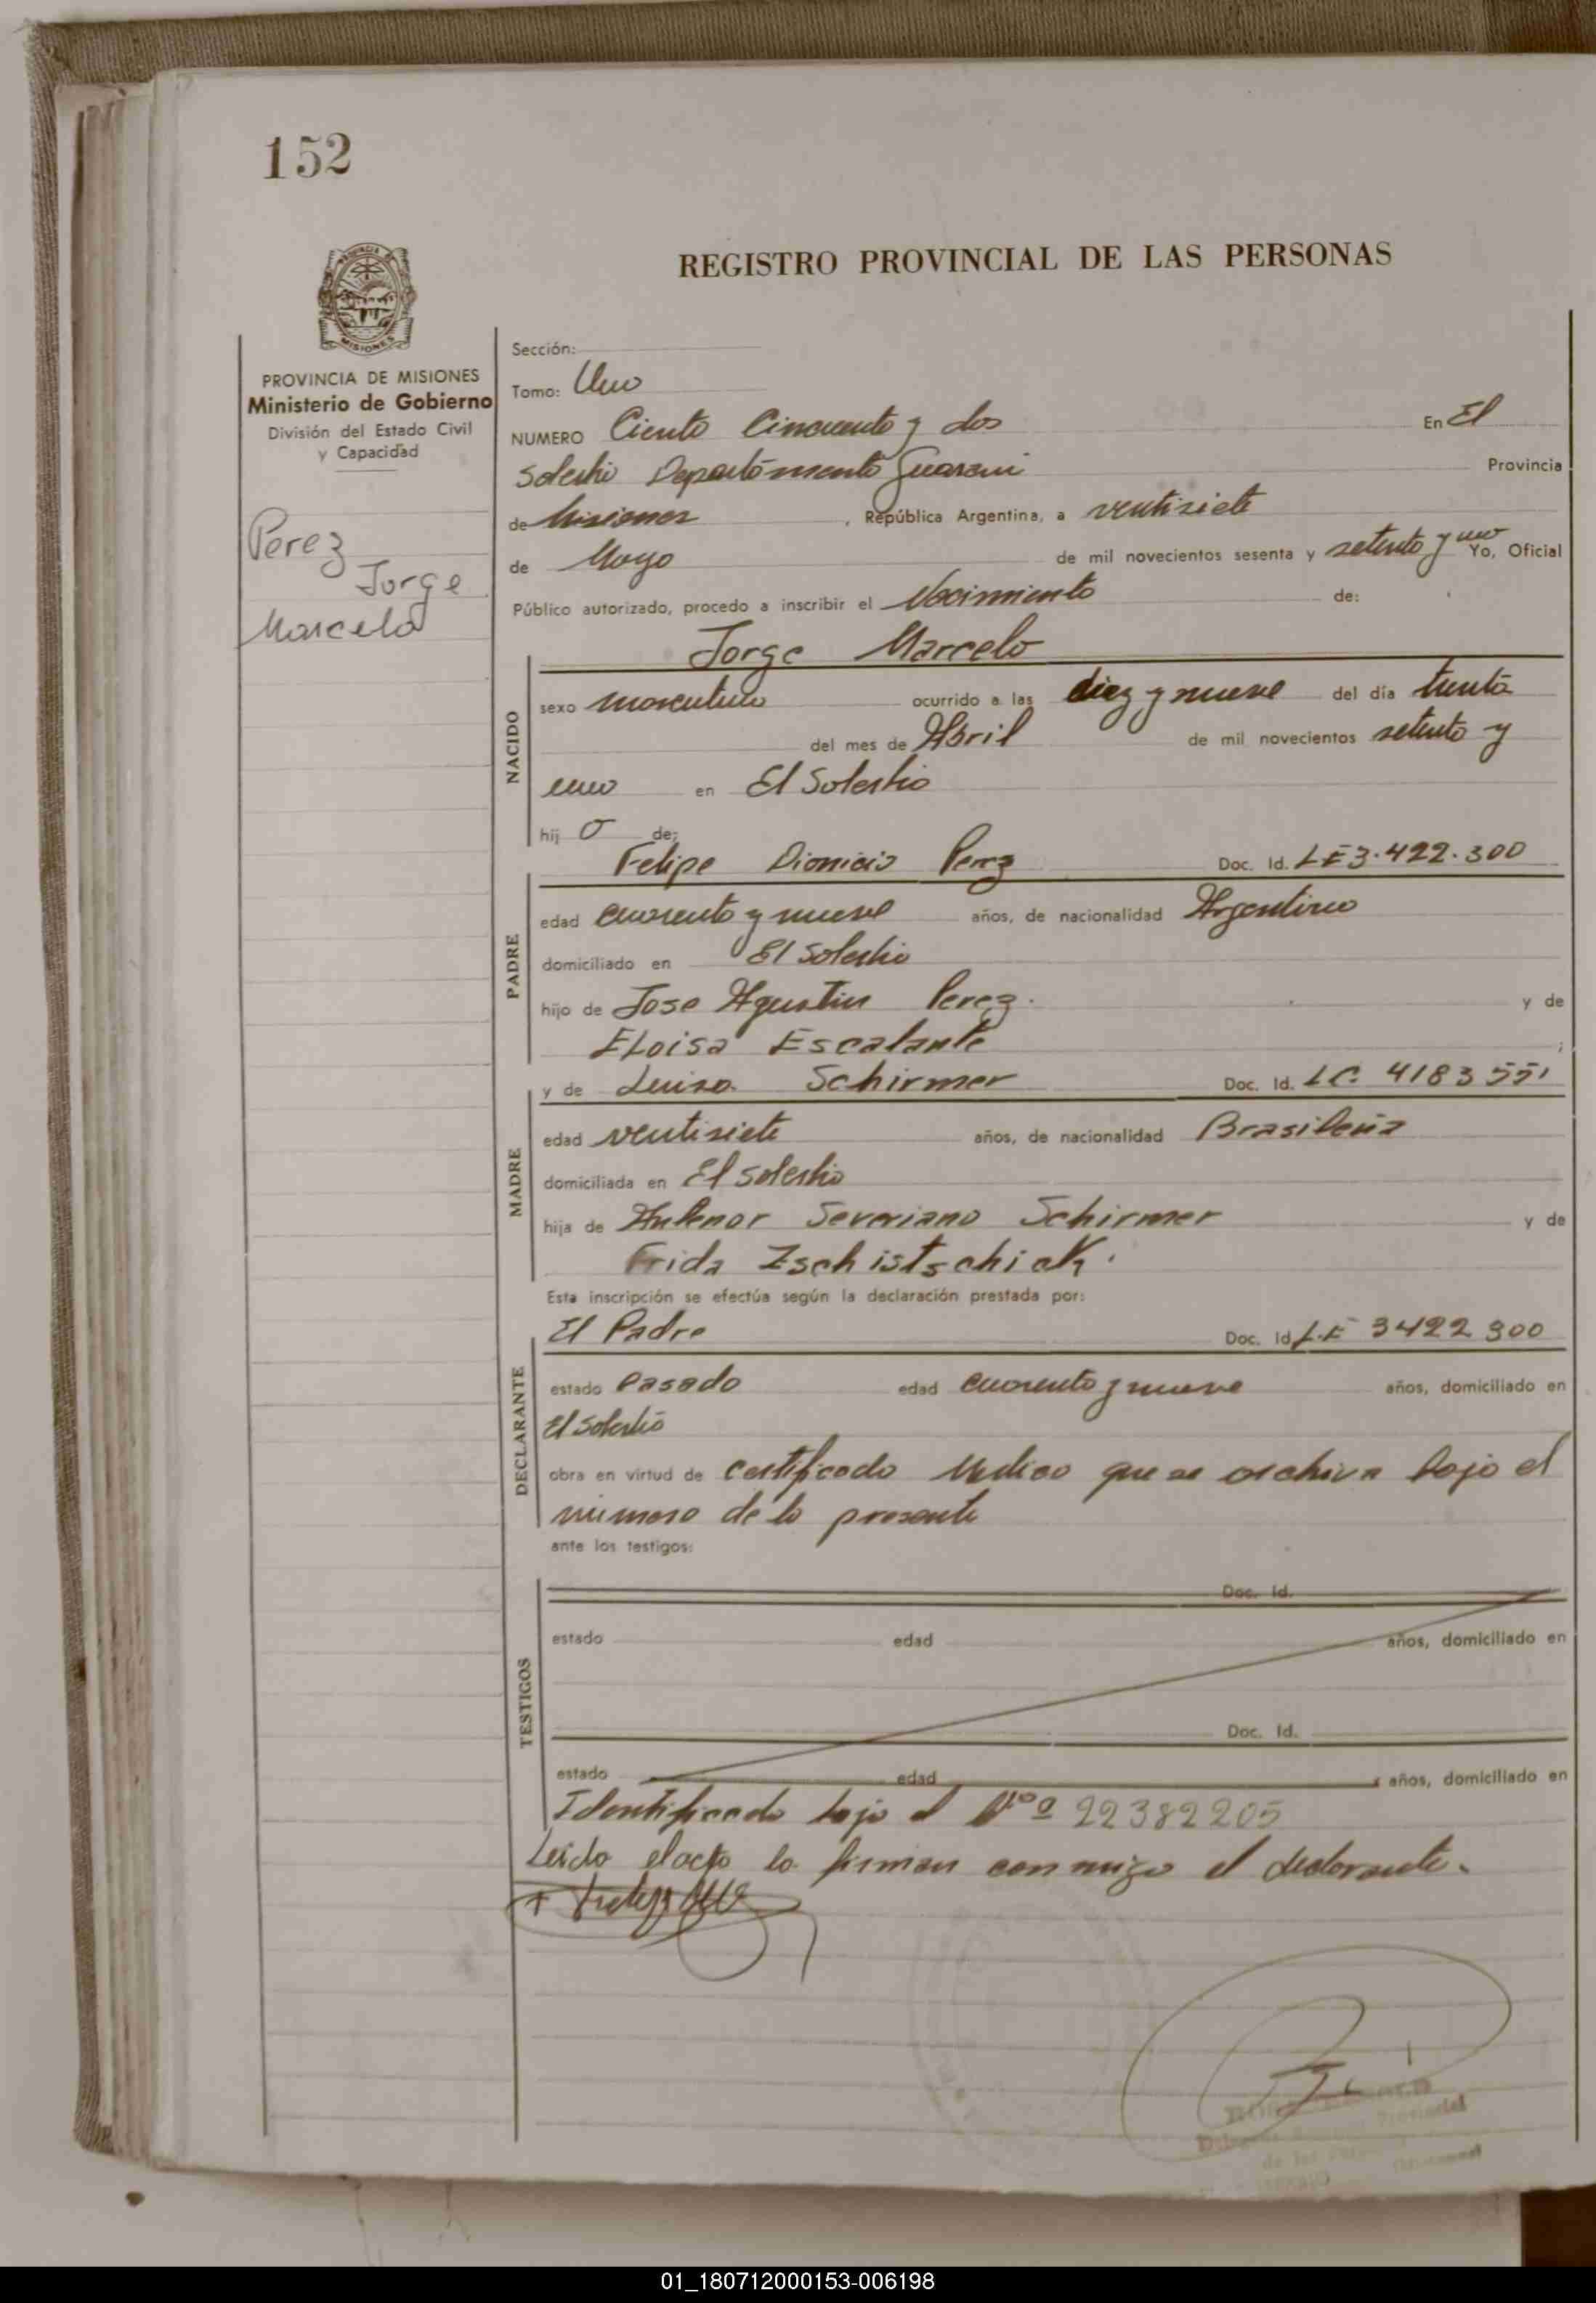 152
REGISTRO PROVINCIAL DE LAS PERSONAS
PROVINCIA DE
MISIONES
PROVINCIA DE MISIONES
Ministerio de Gobierno
División del Estado Civil
y Capacidad
Perez
Jorge
Marcelo
Sección:
Tomo: Uno
NUMERO Ciento Cincuenta y dos En El
Soberbio Departamento Guarani Provincia
de Misiones, República Argentina, a ventisiete
de Mayo de mil novecientos sesenta y setenta y uno Yo, Oficial
Público autorizado, procedo a inscribir el Nacimiento de:
Jorge Marcelo
NACIDO
sexo masculino ocurrido a las diez y nueve del día treinta
del mes de Abril de mil novecientos setenta y
uno en El Soberbio
hij o de:
Felipe Dionicio Perez Doc. Id. LE 3.422.300
PADRE
edad cuarenta y nueve años, de nacionalidad Argentino
domiciliado en El Soberbio
hijo de Jose Agustin Perez. y de
Eloisa Escalante ;
y de Luisa Schirmer Doc. Id. LC. 4183551
MADRE
edad ventisiete años, de nacionalidad Brasileña
domiciliada en El Soberbio
hija de Antenor Severiano Schirmer y de
Frida Zschistschick.
Esta inscripción se efectúa según la declaración prestada por:
El Padre Doc. Id L.E 3422300
DECLARANTE
estado Casado edad cuarenta y nueve años, domiciliado en
El Soberbio
obra en virtud de certificado Medico que se archiva bajo el
numero de la presente
ante los testigos:
TESTIGOS
Doc. Id.
estado edad años, domiciliado en
Doc. Id.
estado edad años, domiciliado en
Identificado bajo el Nº 22382205
Leida el acta la firman conmigo el declarante.
Provincial
de las
01_180712000153-006198